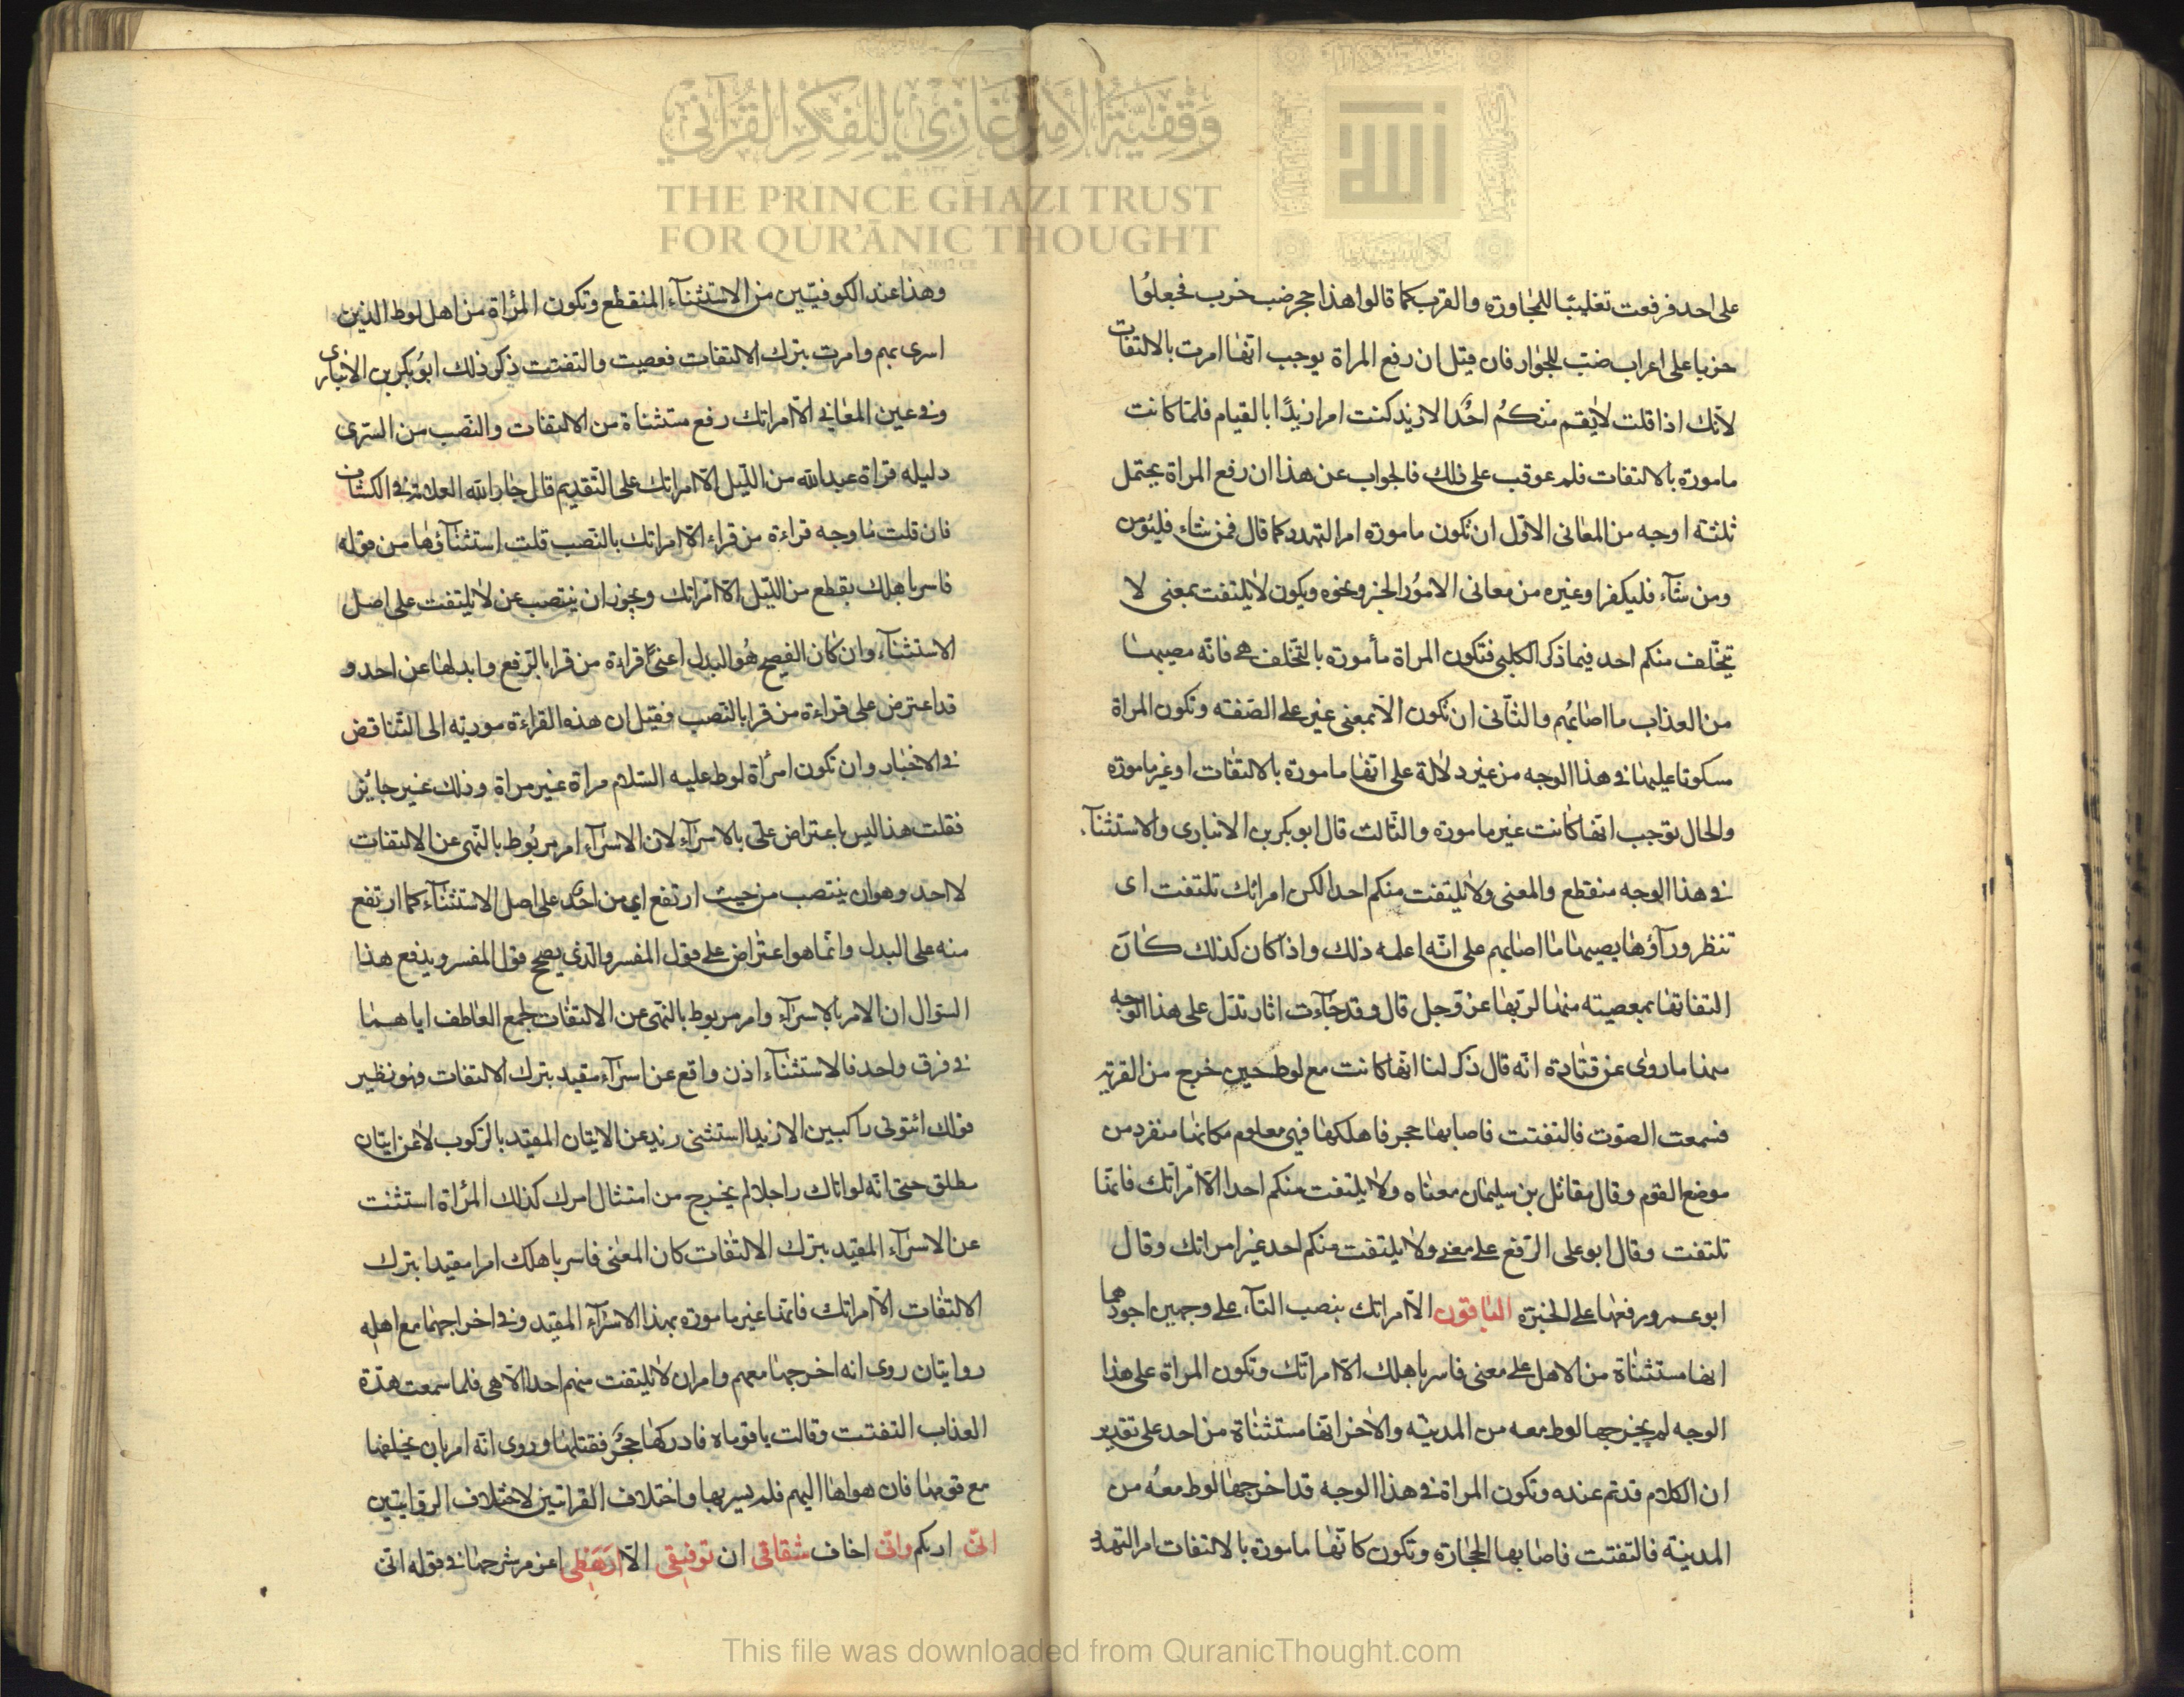 وقفية الأمير غازي للفكر القرآني
THE PRINCE GHAZI TRUST
FOR QUR'ĀNIC THOUGHT
على احد فرفعت تغليبا للمجاورة والقرب كما قالوا هذا حجر ضب خرب فجعلوا
خربا على اعراب ضب للجوار فان قيل ان رفع المراة يوجب انها امرت بالالتفات
لانك اذا قلت لا يقم منكم احد الا زيد كنت امرا زيدا بالقيام فلما كانت
مامورة بالالتفات فلم عوقب على ذلك فالجواب عن هذا ان رفع المراة يحتمل
ثلثة اوجه من المعانى الاول ان تكون مامورة امر التهدد كما قال فمن شاء فليؤمن
ومن شآء فليكفر او غيره من معانى الامور الخبر ونحوه ويكون لا يلتفت بمعنى لا
يتخلف منكم احد فيما ذكر الكلبى فتكون المراة مأمورة بالتخلف هى فانه مصيبها
من العذاب ما اصابهم والثانى ان تكون الا بمعنى غير على الصفة وتكون المراة
مسكوتا عليها فى هذا الوجه من غير دلالة على انها مامورة بالالتفات او غير مامورة
والحال يوجب انها كانت غير مامورة والثالث قال ابو بكر بن الانبارى والاستثنآء
فى هذا الوجه منقطع والمعنى ولا يلتفت منكم احد الكن امراتك تلتفت اى
تنظر ورآؤها يصيبها ما اصابهم على انه اعلمه ذلك واذا كان كذلك كان
التفاتها بمعصيته منها لربها عز وجل قال وقد جآءت اثار تدل على هذا الوجه
منها ما روى عن قتادة انه قال ذكر لنا انها كانت مع لوط حين خرج من القرية
فسمعت الصوت فالتفتت فاصابها حجر فاهلكها فهى معلوم مكانها منفرد من
موضع القوم وقال مقاتل بن سليمان معناه ولا يلتفت منكم احد الا امراتك فانها
تلتفت وقال ابو على الرفع على معنى ولا يلتفت منكم احد غير امراتك وقال
ابو عمرو رفعها على الخبرة الباقون الا امراتك بنصب التآء على وجهين اجودهما
انها مستثناة من الاهل على معنى فاسر باهلك الا امراتك وتكون المراة على هذا
الوجه لم يخرجها لوط معه من المدينة والاخر انها مستثناة من احد على تقدير
ان الكلام قد تم عنده وتكون المراة فى هذا الوجه قد اخرجها لوط معه من
المدينة فالتفتت فاصابها الحجارة وتكون كانها مامورة بالالتفات امر التهدد
وهذا عند الكوفيين من الاستثنآء المنقطع وتكون المراة من اهل لوط الذين
اسرى بهم وامرت بترك الالتفات فعصيت والتفتت ذكر ذلك ابو بكر بن الانبارى
وفى عين المعانى الا امراتك رفع مستثناة من الالتفات والنصب من السرى
دليله قراة عبد الله من الليل الا امراتك على التقديم قال جار الله العلامة فى الكشاف
فان قلت ما وجه قراءة من قراء الا امراتك بالنصب قلت استثنآؤها من قوله
فاسر باهلك بقطع من الليل الا امراتك ويجوز ان ينتصب عن لا يلتفت على اصل
الاستثنآء وان كان الفصيح هو البدل اعنى قراءة من قرا بالرفع وابدلها عن احد و
قد اعترض على قراءة من قرا بالنصب فقيل ان هذه القراءة مورية الى التناقض
فى الاخبار وان تكون امراة لوط عليه السلام مراة غير مراة وذلك غير جائز
فقلت هذا ليس باعتراض على بالاسرآء لان الاسرآء امر مربوط بالنهى عن الالتفات
لا احد وهو ان ينتصب من حيث ارتفع اى من احد على اصل الاستثنآء كما ارتفع
منه على البدل وانما هو اعتراض على قول المفسر والذى يصحح قول المفسر ويدفع هذا
السؤال ان الامر بالاسرآء وامر مربوط بالنهى عن الالتفات لجمع العاطف اياهما
فى فرق واحد فالاستثنآء اذن واقع عن اسرآء مقيد بترك الالتفات فهو نظير
قولك ائتونى راكبين الا زيدا استثنى زيد عن الاتيان المقيد بالركوب لا عن اتيان
مطلق حتى انه لو اتاك راجلا لم يخرج من امتثال امرك كذلك المراة استثنت
عن الاسرآء المقيد بترك الالتفات كان المعنى فاسر باهلك امرا مقيدا بترك
الالتفات الا امراتك فانها غير مامورة بهذا الاسرآء المقيد وفى اخراجها مع اهله
روايتان روى انه اخرجها معهم وامر ان لا يلتفت منهم احد الا هى فلما سمعت هدة
العذاب التفتت وقالت يا قوماه فادركها حجر فقتلها وروى انه امر بان يخلفها
مع قومها فان هواها اليهم فلم يسر بها واختلاف القراتين لاختلاف الروايتين
انى اريكم وانى اخاف شقاقى ان توفيقى الا ارهطى اعز مر شرحها فى قوله انى
This file was downloaded from QuranicThought.com